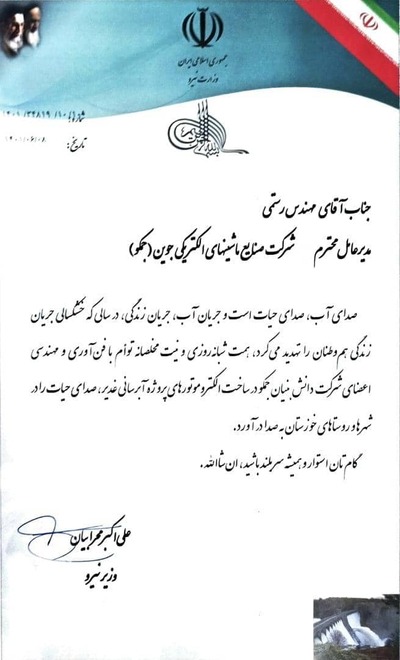 جمهوری اسلامی ایران
وزارت نیرو
شماره: ۱۴۰۱/۳۴۸۱۹/۱۰۰
تاریخ: ۱۴۰۱/۰۶/۰۸
جناب آقای مهندس رستمی
مدیرعامل محترم شرکت صنایع ماشینهای الکتریکی جوین (جمکو)
صدای آب، صدای حیات است و جریان آب، جریان زندگی، در سالی که خشکسالی جریان
زندگی هم وطنان را تهدید می‌کرد، همت شبانه‌روزی و نیت مخلصانه توأم با فن‌آوری و مهندسی
اعضای شرکت دانش بنیان جمکو در ساخت الکتروموتورهای پروژه آبرسانی غدیر، صدای حیات را در
شهرها و روستاهای خوزستان به صدا در آورد.
گام تان استوار و همیشه سربلند باشید، ان شاالله.
علی اکبر محرابیان
وزیر نیرو